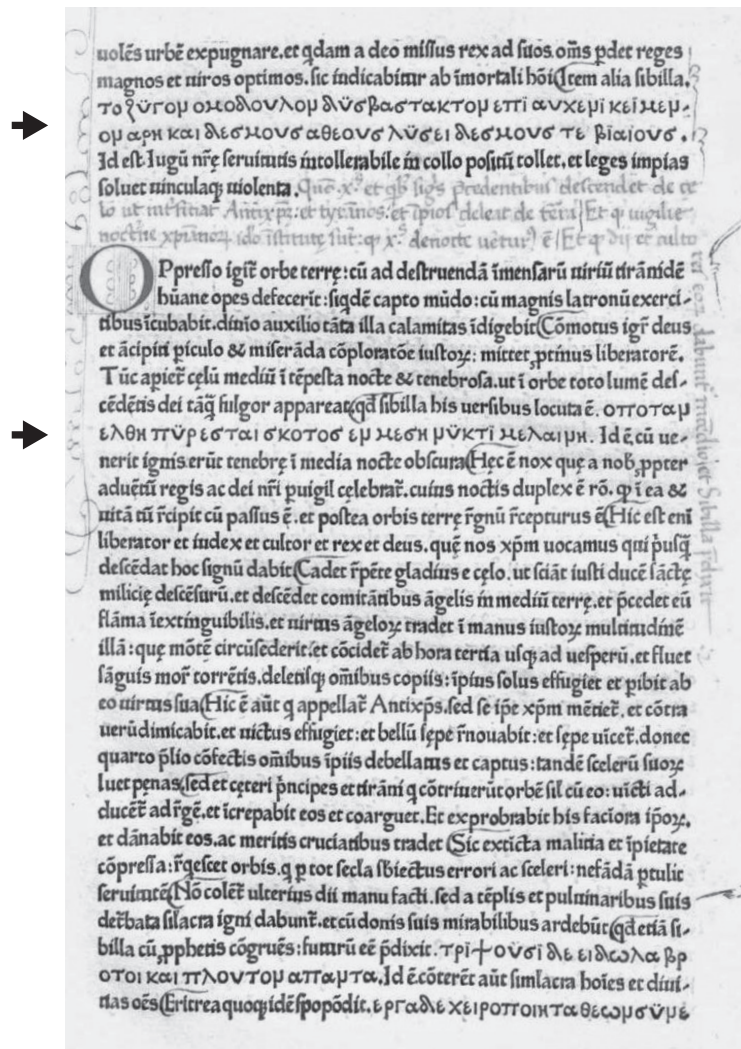 uolēs urbē expugnare.et qdam a deo missus rex ad suos.oms pdet reges
magnos et uiros optimos.sic indicabitur ab imortali hōi Item alia sibilla.
το ζϋγομ ομοδουλομ δϋσβαστακτομ επι αυχεμι κειμεμ-
ομ αρη και δεσμους αθεους λϋσει δεσμους τε βιαιους.
Id est Iugū nrē seruitutis intollerabile in collo positū tollet.et leges impias
soluet uinculaq; uiolenta.
OPpresso igit orbe terrę:cū ad destruendā imensarū uiriū tirānidē
hūane opes defecerit:siqdē capto mūdo:cū magnis latronū exerci-
tibus icubabit.diuio auxilio tāta illa calamitas idigebit Cōmotus igr deus
et ācipiti piculo & miserāda cōploratōe iustoꝝ: mittet ptinus liberatorē.
Tūc apiet cęlū mediū ī tēpesta nocte & tenebrosa.ut ī orbe toto lumē des-
cēdētis dei tāq fulgor appareat qd sibilla his uersibus locuta ē. οπποταμ
ελθη πϋρεσται σκοτος εμ μεση μϋκτι μελαιμη. Id ē cū ue-
nerit ignis erūt tenebrę ī media nocte obscura Hęc ē nox quę a nob ppter
aduētū regis ac dei nri puigil cęlebrat.cuius noctis duplex ē rō. q ī ea &
uitā tū rcipit cū passus ē.et postea orbis terrę rgnū rcepturus ē Hic est eni
liberator et iudex et cultor et rex et deus.quę nos xpm uocamus qui pusq
descēdat hoc signū dabit Cadet rpēte gladius e cęlo.ut sciāt iusti ducē sāctę
milicię descēsurū.et descēdet comitātibus āgelis in mediū terrę.et pcedet eū
flāma īextinguibilis.et uirtus āgeloꝝ tradet ī manus iustoꝝ multitudinē
illā:quę mōtē circūsederit.et cōcidet ab hora tertia usq; ad uesperū.et fluet
sāguis mor torrētis.deletisq; omībus copiis:īpius solus effugiet et pibit ab
eo uirtus sua Hic ē aūt q appellat Antixps.sed se ipe xpm mētiet.et cōtra
uerū dimicabit.et uictus effugiet:et bellū sępe rnouabit:et sępe uīcet.donec
quarto plio cōfectis omībus īpiis debellatus et captus:tandē scelerū suoꝝ
luet penas.sed et cęteri pncipes et tirāni q cōtriuerūt orbē sil cū eo:uīcti ad-
ducēt ad rgē.et īcrepabit eos et coarguet.Et exprobrabit his faciora ipoꝝ.
et dānabit eos.ac meritis cruciatibus tradet Sic extīcta malitia et īpietate
cōpressa:rqescet orbis.q p tot secla sbiectus errori ac sceleri:nefādā ptulit
seruitutē Nō colēt ulterius dii manu facti.sed a tēplis et puluinaribus suis
detbata silacra igni dabunt.et cū donis suis mirabilibus ardebūt qd etiā si-
billa cū pphetis cōgruēs:futurū eē pdixit.τριψουσι δε ειδωλα βρ
οτοι και πλουτομ απαμτα.Id ē cōterēt aūt simlacra hoīes et diui-
tias oēs Eritrea quoq; idē spopōdit.εργα δε χειροποιητα θεωμ σϋμε